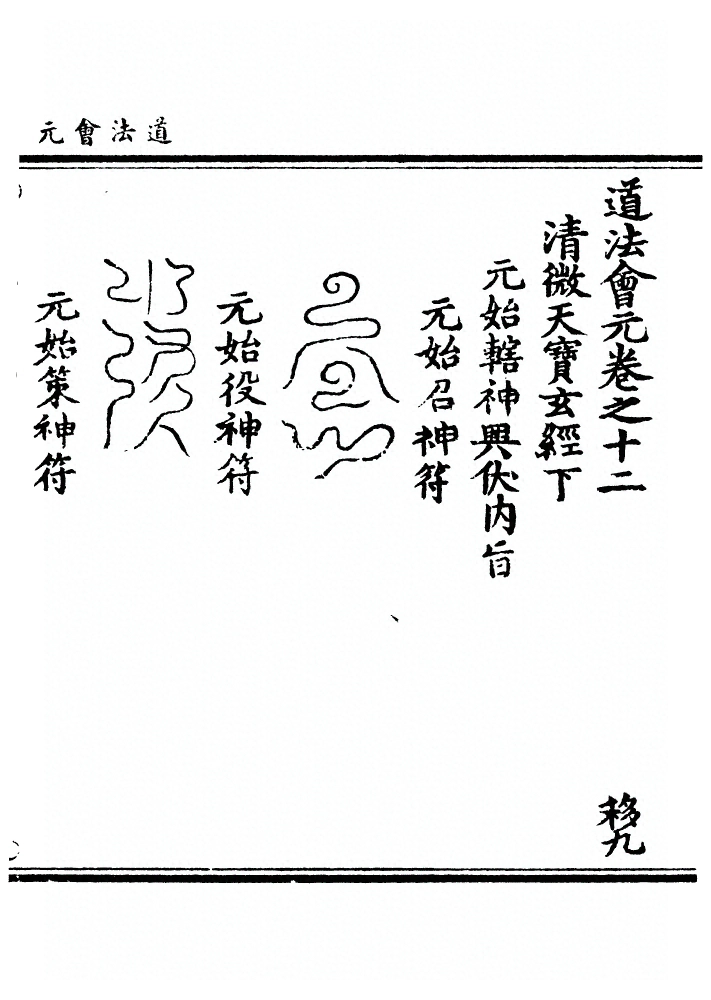 道法會元
道法會元卷之十二
移九
清微天寶玄經下
元始轄神興伏內旨
元始召神符
元始役神符
元始策神符